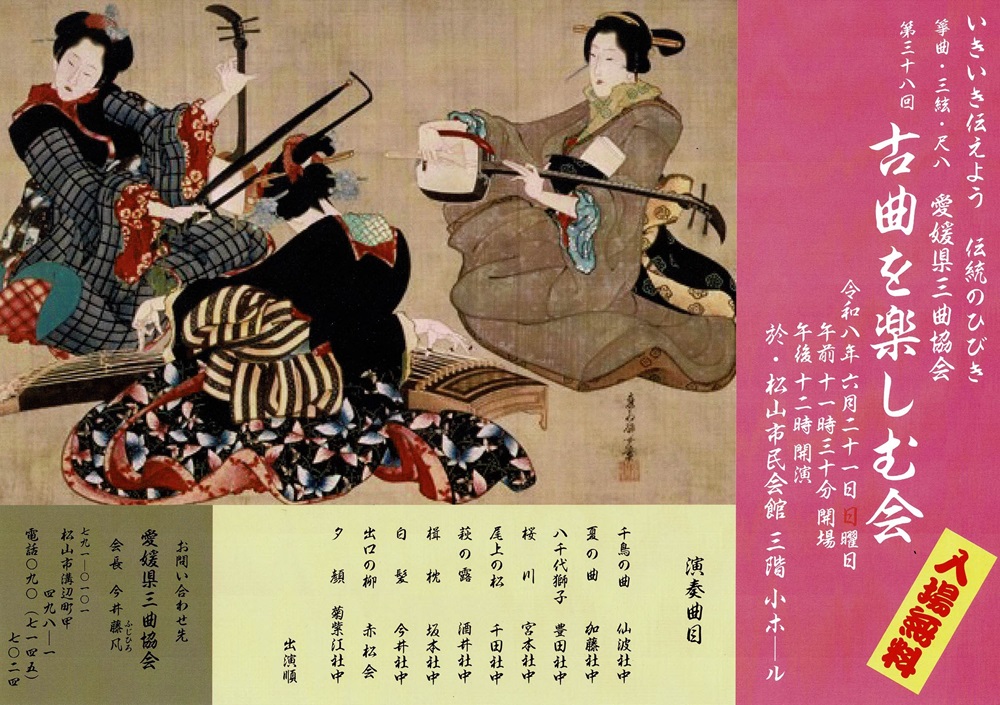 いきいき伝えよう 伝統のひびき
箏曲・三絃・尺八 愛媛県三曲協会
第三十八回 古曲を楽しむ会
令和八年 六月二十一日 日曜日
午前 十一時三十分 開場
午後 十二時 開演
於・松山市民会館 三階 小ホール
入場無料
演奏曲目
千鳥の曲 仙波社中
夏の曲 加藤社中
八千代獅子 豊田社中
桜川 宮本社中
尾上の松 千田社中
萩の露 酒井社中
楫枕 坂本社中
白髪 今井社中
出口の柳 赤松会
夕顔 菊紫江社中
出演順
お問い合わせ先
愛媛県三曲協会
会長 今井藤凡
ふじひろ
七九一―〇一〇一
松山市溝辺町甲
四九八―一
電話〇九〇(七一四五)
七〇二四